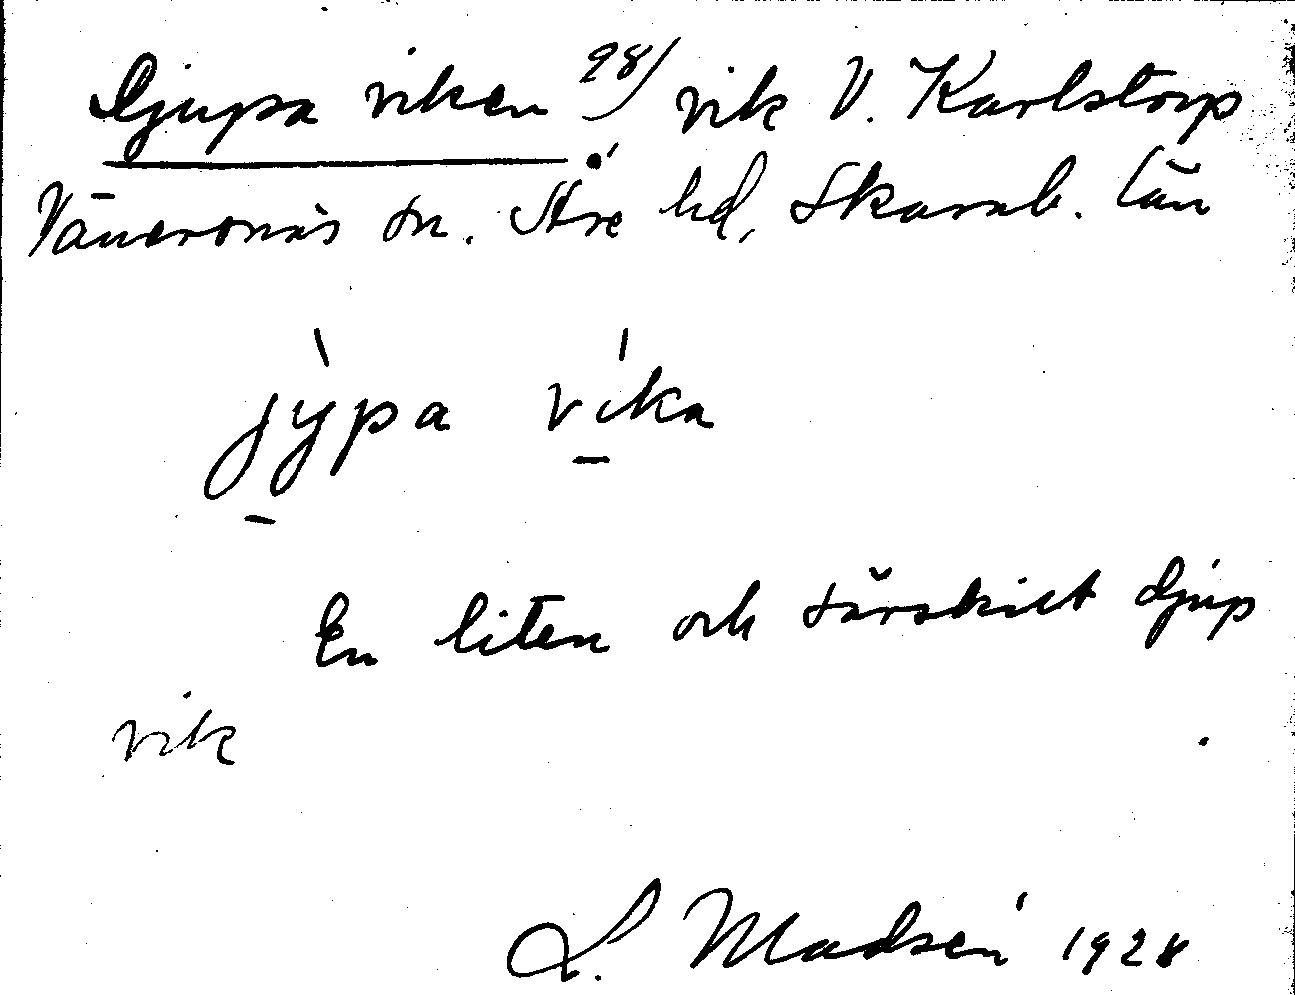 Djupa viken 98/ vik V. Karlstorp
Vänersnäs sn. Åse hd, Skarab. län
jỳpa víka
En liten och särskilt djup
vik
L. Madsén 1928